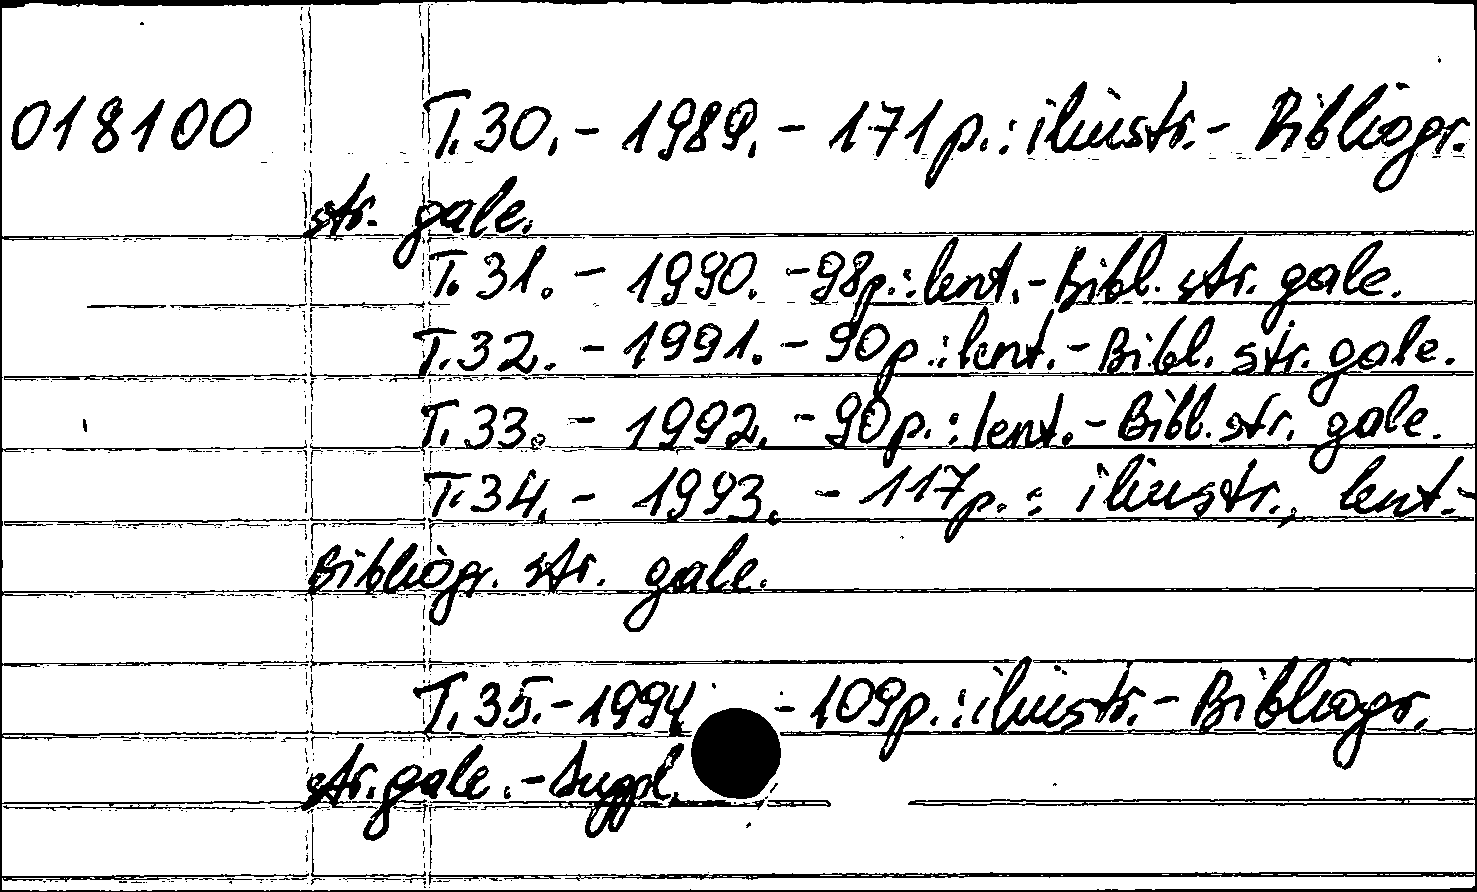 018100 T.30. - 1989. - 171p.: iliustr. - Bibliogr.
str. gale.
T. 31. - 1990. - 98p.: lent. - Bibl. str. gale.
T. 32. - 1991. - 90p.: lent. - Bibl. str. gale.
T. 33. - 1992. - 90p.: lent. - Bibl. str. gale.
T. 34. - 1993. - 117p.: iliustr., lent. -
Bibliogr. str. gale.
T. 35. - 1994 - 109p.: iliustr. - Bibliogr.
str. gale. - Suppl.